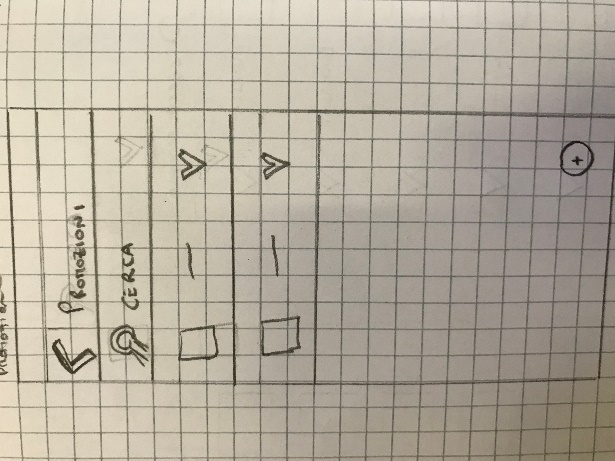 PROMOZIONI
CERCA
+